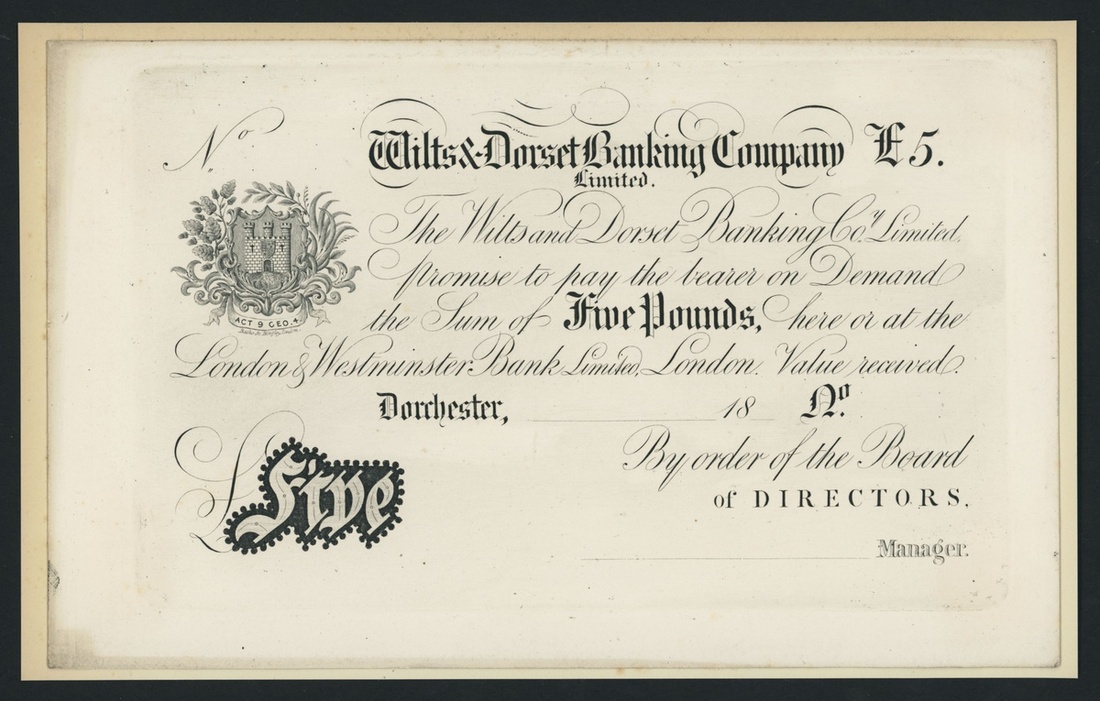 No
Wilts & Dorset Banking Company £5.
Limited.
The Wilts and Dorset Banking Coy. Limited,
promise to pay the bearer on Demand
ACT 9 GEO. 4
the Sum of Five Pounds, here or at the
London & Westminster Bank Limited, London. Value received.
Dorchester, 18 No.
By order of the Board
of DIRECTORS,
£ Five
Manager.